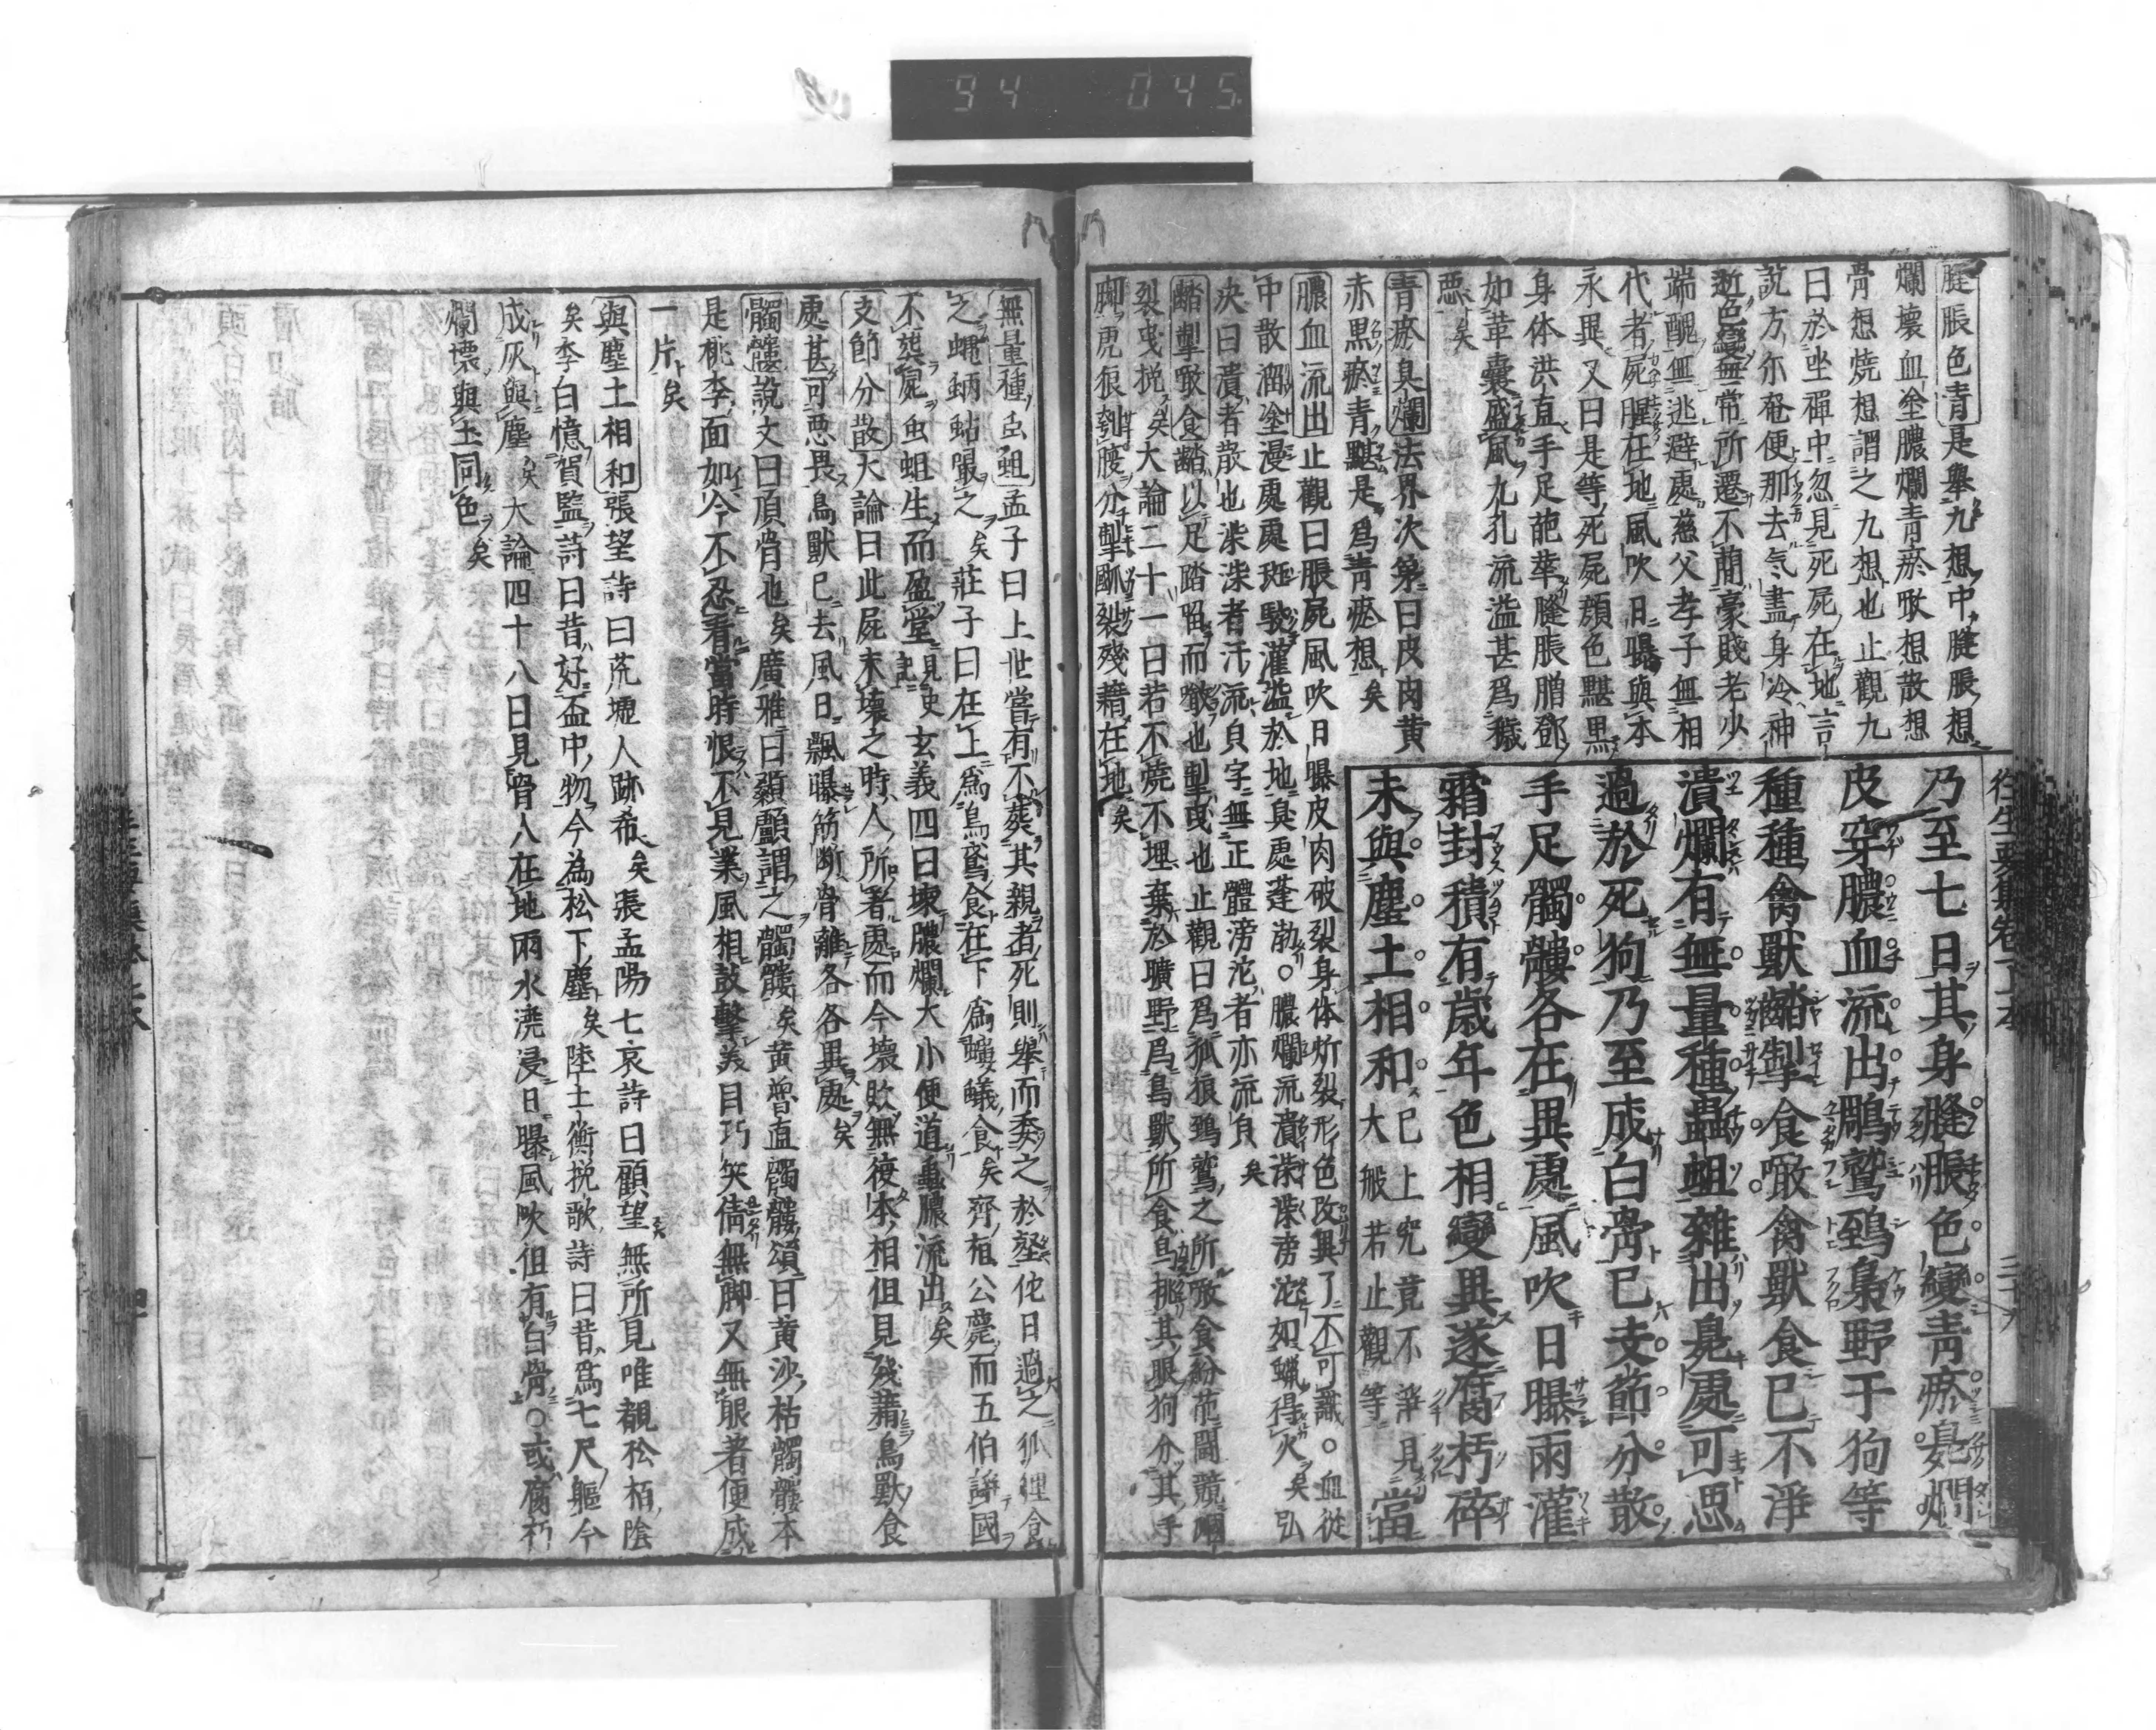 94 045
往生要集卷下本
乃至七日其身膖脹色變青瘀臭爛
皮穿膿血流出鵰鷲鵄梟野干狗等
種種禽獸䶥掣食噉禽獸食已不淨
潰爛有無量種蟲蛆雜出臭處可惡
過於死狗乃至成白骨已支節分散
手足髑髏各在異處風吹日曝雨灌
霜封積有歲年色相變異遂腐朽碎
末與塵土相和
已上究竟不淨見
大般若止觀等
當
膖脹色青是舉九想中膖脹想
爛壞血塗膿爛青瘀噉想散想
骨想燒想謂之九想也止觀九
曰於坐禪中忽見死屍在地言
說方尓奄便那去气盡身冷神
逝色變無常所遷不蕳豪賤老少
端醜無逃避處慈父孝子無相
代者屍腥在地風吹日曝與本
永異又曰是等死屍顏色黮黑
身体洪直手足葩華膖脹膖鄧
如革囊盛風九孔流溢甚爲穢
惡矣
青瘀臭爛法界次第曰皮肉黃
赤黑瘀青黮是爲青瘀想矣
膿血流出止觀曰脹屍風吹日曝皮肉破裂身体斨裂形色改異了不可識○血從
中散溜塗漫處處斑駁灌溢於地臭處蓬勃○膿爛流潰滂沱如蠟得火矣弘
決曰潰者散也者汗流貝字無正體滂沱者亦流貝矣
䶥掣噉食䶥以足踏䶥而噉也掣曳也止觀曰爲狐狼鵄鷲之所噉食紛葩鬪競
裂曳挽矣大論二十一曰若不燒不埋棄於曠野爲鳥獸所食鳥挑其眼狗分其手
脚虎狼刳腹分掣㓟裂殘藉在地矣
無量種虫蛆孟子曰上世當有不葬其親者死則舉而委之於壑佗日過之狐狸食
之蠅蚋蛄嘬之矣莊子曰在上爲烏鳶食在下爲螻蟻食矣齊桓公薨而五伯諍國
不葬屍虫蛆生而盈堂見史記玄義四曰壞膿爛大小便道蟲膿流出矣
支節分散大論曰此屍未壞之時人所著處而今壞敗無復本相但見殘藉鳥獸食
處甚可惡畏鳥獸已去風日飄曝筋斷骨離各各異處矣
髑髏說文曰頂骨也矣廣雅曰顙顱謂之髑髏矣黃魯直髑髏頌曰黃沙枯髑髏本
是桃李面如今不忍看當時恨不見業風相鼓擊美目巧笑倩無脚又無眼著便成
一片矣
與塵土相和張望詩曰荒墟人跡希矣張孟陽七哀詩曰顧望無所見唯覩松栢陰
矣李白憶賀監詩曰昔好盃中物今為松下塵矣陸士衡挽歌詩曰昔爲七尺軀今
成灰與塵矣大論四十八曰見骨人在地雨水澆浸日曝風吹但有白骨○或腐朽
爛壞與土同色矣